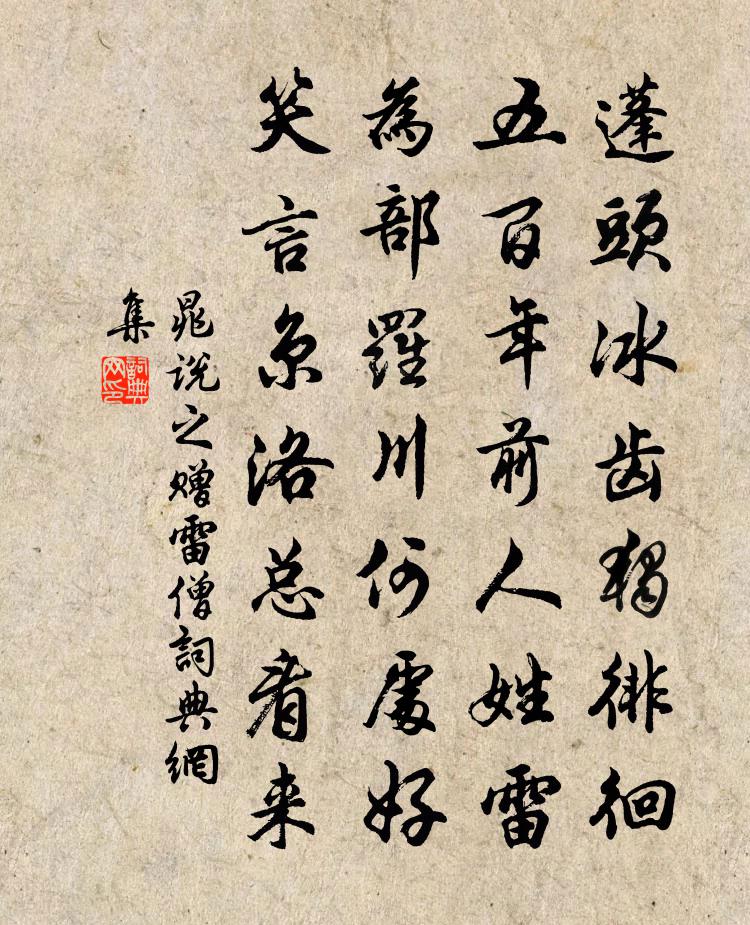 蓬頭冰齒獨徘徊
五百年前人姓雷
為部羅川何處好
笑言京洛总看来
晁说之赠雷僧詞典網
集
詞典
网印